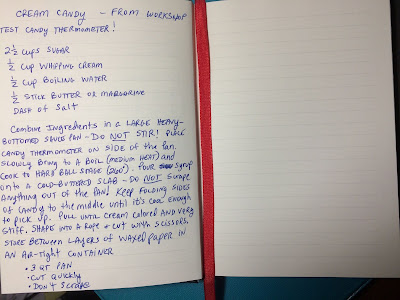 CREAM CANDY - FROM WORKSHOP
TEST CANDY THERMOMETER!
2½ cups SUGAR
½ cup WHIPPING CREAM
½ cup BOILING WATER
½ STICK BUTTER OR MARGARINE
DASH OF SALT
Combine Ingredients in a LARGE HEAVY-
BOTTOMED SAUCE PAN - DO NOT STIR! PLACE
CANDY THERMOMETER ON SIDE OF THE PAN.
SLOWLY BRING TO A BOIL (MEDIUM HEAT) AND
COOK TO HARD BALL STAGE (260°). POUR SYRUP
ONTO A COLD-BUTTERED SLAB - DO NOT SCRAPE
ANYTHING OUT OF THE PAN! KEEP FOLDING SIDES
OF CANDY TO THE MIDDLE UNTIL IT'S COOL ENOUGH
TO PICK UP. PULL UNTIL CREAM COLORED AND VERY
STIFF. SHAPE INTO A ROPE & CUT WITH SCISSORS.
STORE BETWEEN LAYERS OF WAXED PAPER IN
AN AIR-TIGHT CONTAINER
• 3 QT PAN
• CUT QUICKLY
• DON'T SCRAPE